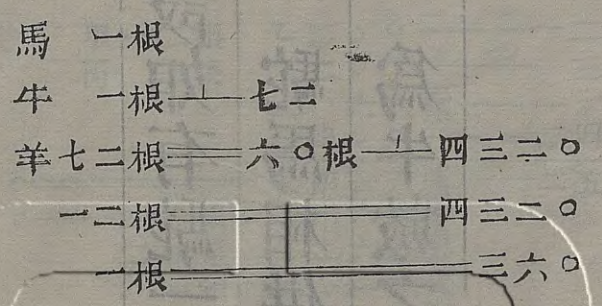 馬 一根
牛 一根⊥七二
羊七二根=六〇根⊥四三二〇
一二根=四三二〇
一根=三六〇